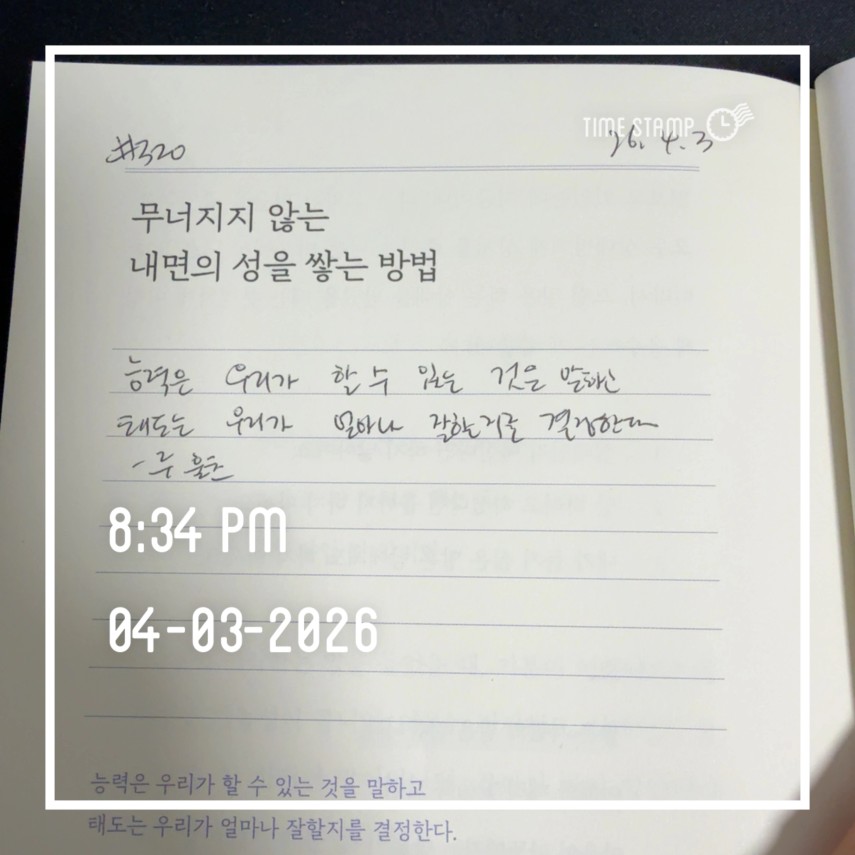 TIME STAMP
#320
26. 4. 3
무너지지 않는
내면의 성을 쌓는 방법
능력은 우리가 할 수 있는 것을 말하고
태도는 우리가 얼마나 잘하는지를 결정한다
- 루 홀츠
8:34 PM
04-03-2026
능력은 우리가 할 수 있는 것을 말하고
태도는 우리가 얼마나 잘할지를 결정한다.